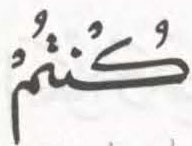 كُنْتُمُ